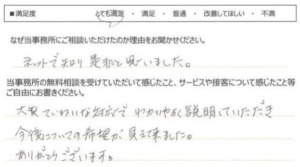 ■満足度 とても満足 ・ 満足 ・ 普通 ・ 改善してほしい ・ 不満
なぜ当事務所にご相談いただけたのか理由をお聞かせください。
ネットで知り 是非と思いました。
当事務所の無料相談を受けていただいて感じたこと、サービスや接客について感じたこと等
ご自由にお書きください。
大変ていねいな対応で わかりやすく説明していただき
今後についての希望が 見えて来ました。
ありがとうございます。